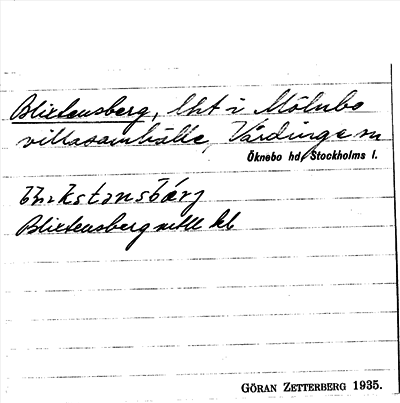 Blixtensberg, lht i Mölnbo
villasamhälle, Vårdinge sn
Öknebo hd, Stockholms l.
Blixtensberg
GÖRAN ZETTERBERG 1935.